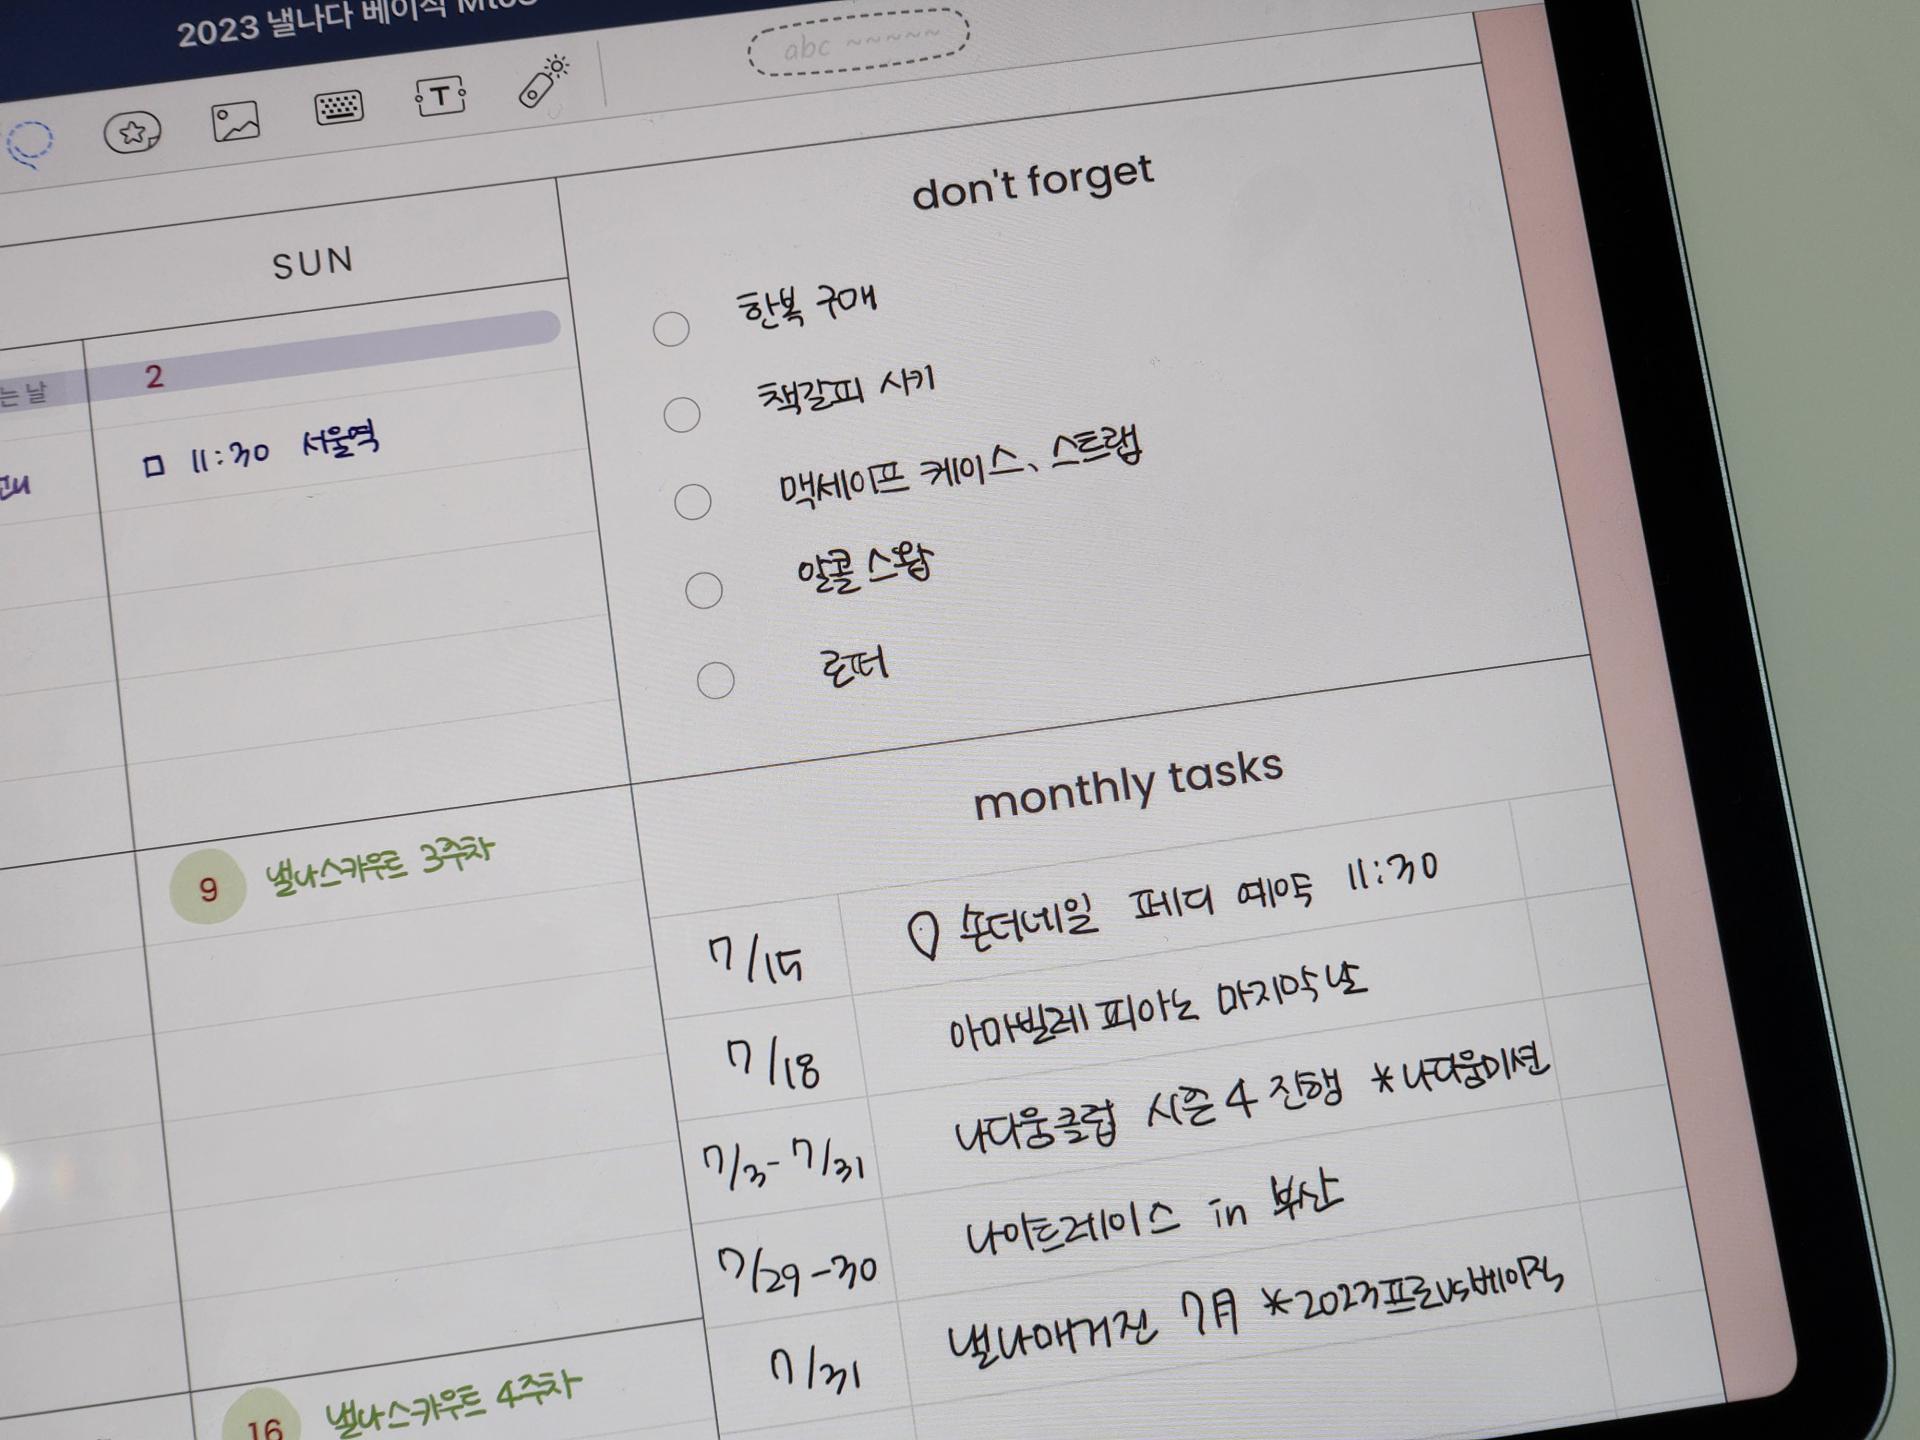 2023 낼나다 베이직
abc ~~~~~
SUN
는 날
2
□ 11:30 서울역
9 낼나스카우트 3주차
16 낼나스카우트 4주차
don't forget
한복 구매
책갈피 사키
맥세이프 케이스, 스트랩
알콜 스왑
론떠
monthly tasks
7/15 손더네일 페디 예약 11:30
7/18 아마빌레 피아노 마지막 날
7/3-7/31 나다움클럽 시즌4 진행 *나다움미션
7/29-30 나이트레이스 in 부산
7/31 낼나매거진 7月 *2023프로vs베이직